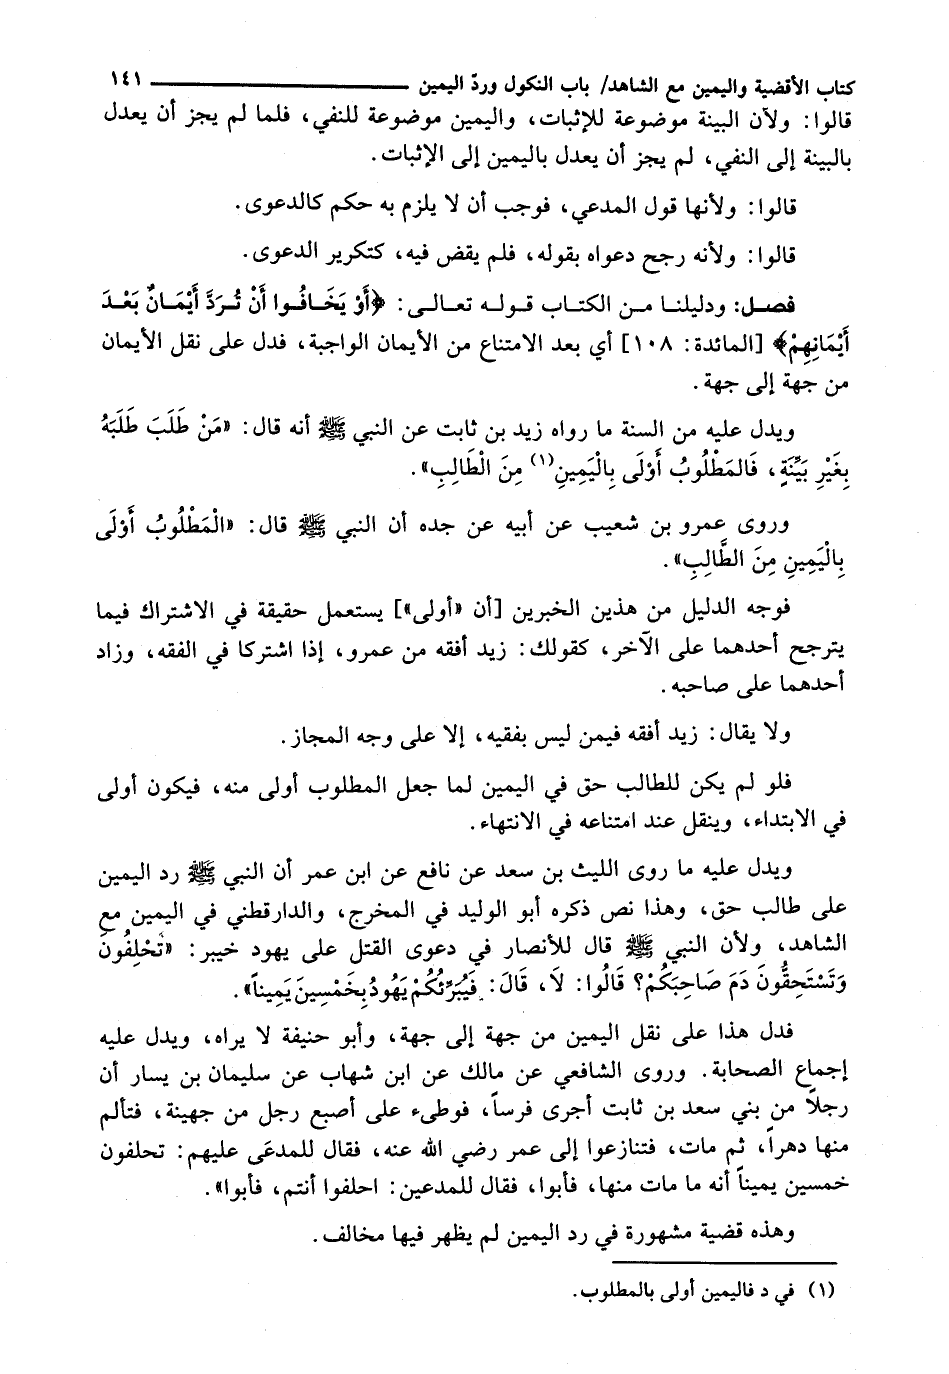 كتاب الأقضية واليمين مع الشاهد/ باب النكول وردّ اليمين ١٤١
قالوا: ولأن البينة موضوعة للإثبات، واليمين موضوعة للنفي، فلما لم يجز أن يعدل
بالبينة إلى النفي، لم يجز أن يعدل باليمين إلى الإثبات.
قالوا: ولأنها قول المدعي، فوجب أن لا يلزم به حكم كالدعوى.
قالوا: ولأنه رجح دعواه بقوله، فلم يقض فيه، كتكرير الدعوى.
فصل: ودليلنا من الكتاب قوله تعالى: ﴿أَوْ يَخَافُوا أَنْ تُرَدَّ أَيْمَانٌ بَعْدَ
أَيْمَانِهِمْ﴾ [المائدة: ١٠٨] أي بعد الامتناع من الأيمان الواجبة، فدل على نقل الأيمان
من جهة إلى جهة.
ويدل عليه من السنة ما رواه زيد بن ثابت عن النبي ﷺ أنه قال: «مَنْ طَلَبَ طَلَبَهُ
بِغَيْرِ بَيِّنَةٍ، فَالمَطْلُوبُ أَوْلَى بِالْيَمِينِ(١) مِنَ الْطَالِبِ».
وروى عمرو بن شعيب عن أبيه عن جده أن النبي ﷺ قال: «الْمَطْلُوبُ أَوْلَى
بِالْيَمِينِ مِنَ الطَّالِبِ».
فوجه الدليل من هذين الخبرين [أن «أولى»] يستعمل حقيقة في الاشتراك فيما
يترجح أحدهما على الآخر، كقولك: زيد أفقه من عمرو، إذا اشتركا في الفقه، وزاد
أحدهما على صاحبه.
ولا يقال: زيد أفقه فيمن ليس بفقيه، إلا على وجه المجاز.
فلو لم يكن للطالب حق في اليمين لما جعل المطلوب أولى منه، فيكون أولى
في الابتداء، وينقل عند امتناعه في الانتهاء.
ويدل عليه ما روى الليث بن سعد عن نافع عن ابن عمر أن النبي ﷺ رد اليمين
على طالب حق، وهذا نص ذكره أبو الوليد في المخرج، والدارقطني في اليمين مع
الشاهد، ولأن النبي ﷺ قال للأنصار في دعوى القتل على يهود خيبر: «تَحْلِفُونَ
وَتَسْتَحِقُّونَ دَمَ صَاحِبَكُمْ؟ قَالُوا: لَا، قَالَ: فَيُبَرِّئُكُمْ يَهُودُ بِخَمْسِينَ يَمِيناً».
فدل هذا على نقل اليمين من جهة إلى جهة، وأبو حنيفة لا يراه، ويدل عليه
إجماع الصحابة. وروى الشافعي عن مالك عن ابن شهاب عن سليمان بن يسار أن
رجلاً من بني سعد بن ثابت أجرى فرساً، فوطىء على أصبع رجل من جهينة، فتألم
منها دهراً، ثم مات، فتنازعوا إلى عمر رضي الله عنه، فقال للمدعَى عليهم: تحلفون
خمسين يميناً أنه ما مات منها، فأبوا، فقال للمدعين: احلفوا أنتم، فأبوا».
وهذه قضية مشهورة في رد اليمين لم يظهر فيها مخالف.
(١) في د فاليمين أولى بالمطلوب.